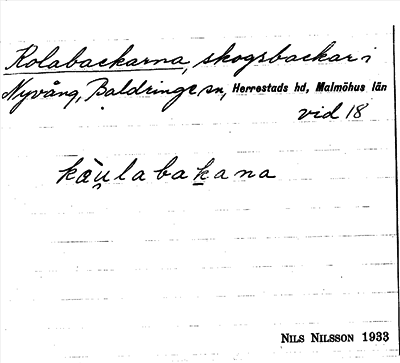 Kolabackarna, skogsbackar i
Nyvång, Baldringe sn, Herrestads hd, Malmöhus län
vid 18
kæ̀u̯labak̠ana
NILS NILSSON 1933